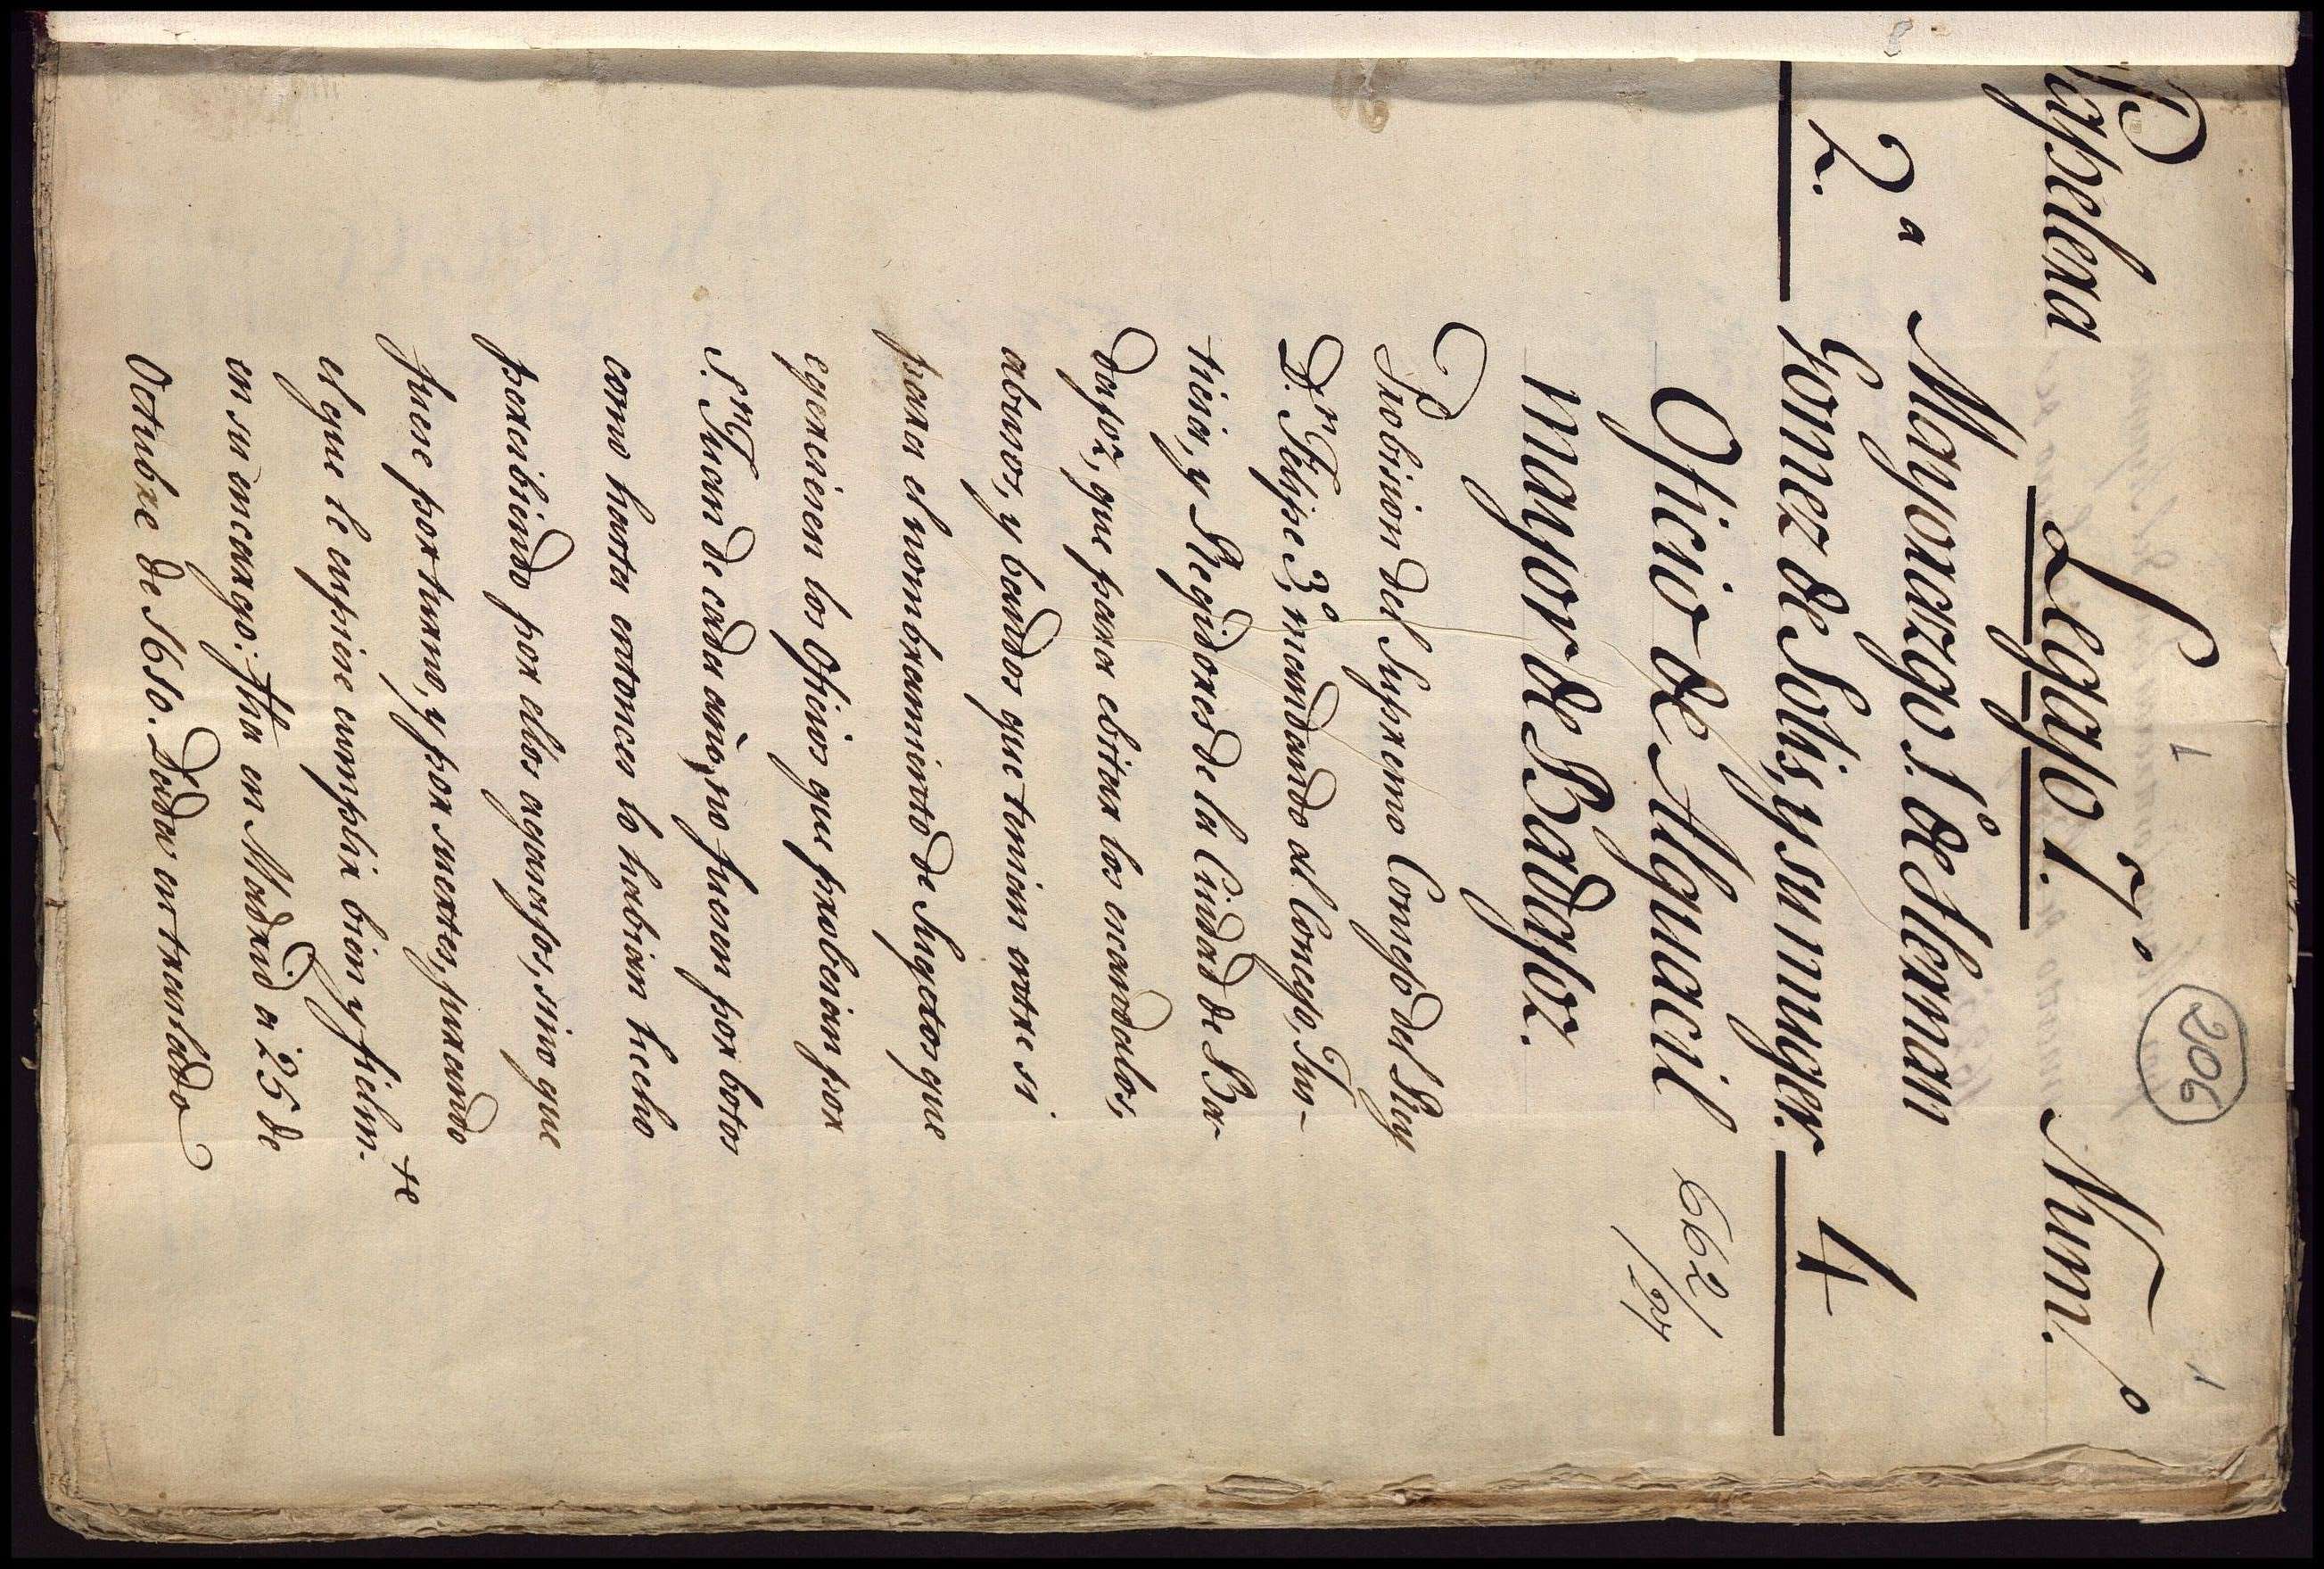 1
206
1
Papelera Legajo 17.º Num.º
2.ª Mayorazgo 1.º de Hernan 4
Gomez de Solis, y su muger.
Oficio de Alguacil 662/24
mayor de Badajoz.
Probision del Supremo Consejo del Rey
D.n Felipe 3.º mandando al Concejo, Jus-
ticia, y Regidores de la Ciudad de Ba-
dajoz, que para ebitar los escandalos,
abusos, y bandos que tenian entre si
para el nombramiento de Sugetos que
egerciesen los Oficios que probeian por
S.n Juan de cada año, no fuesen por botos
como hasta entonces lo habian hecho
percibiendo por ellos agasajos, sino que
fuese por turno, y por suertes, jurando
el que le cupiere cumplir bien y fielm.te
en su encargo: fha en Madrid a 25 de
Octubre de 1610. Dada en traslado